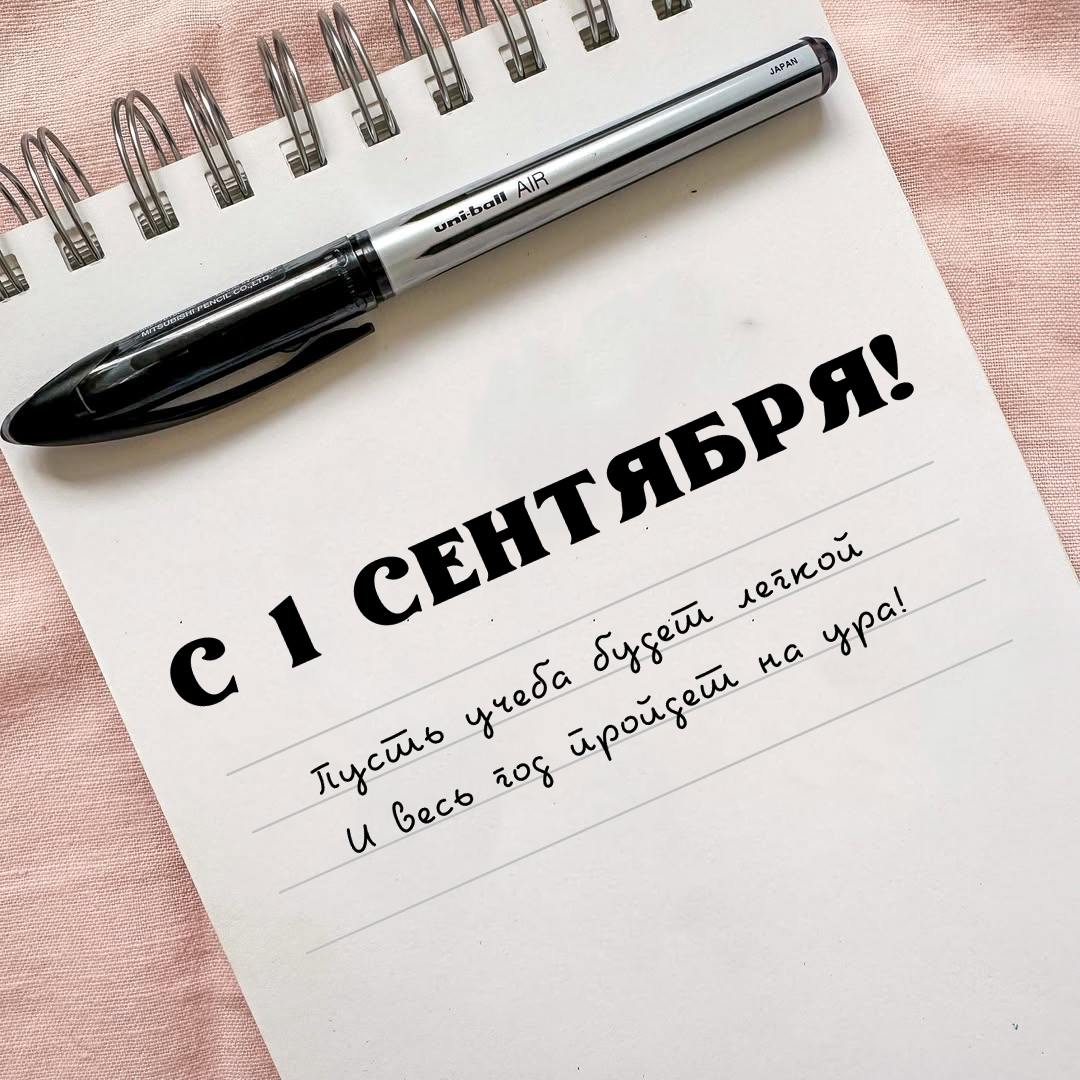 JAPAN
uni-ball AIR
MITSUBISHI PENCIL CO.,LTD.
С 1 СЕНТЯБРЯ!
Пусть учеба будет легкой
И весь год пройдет на ура!